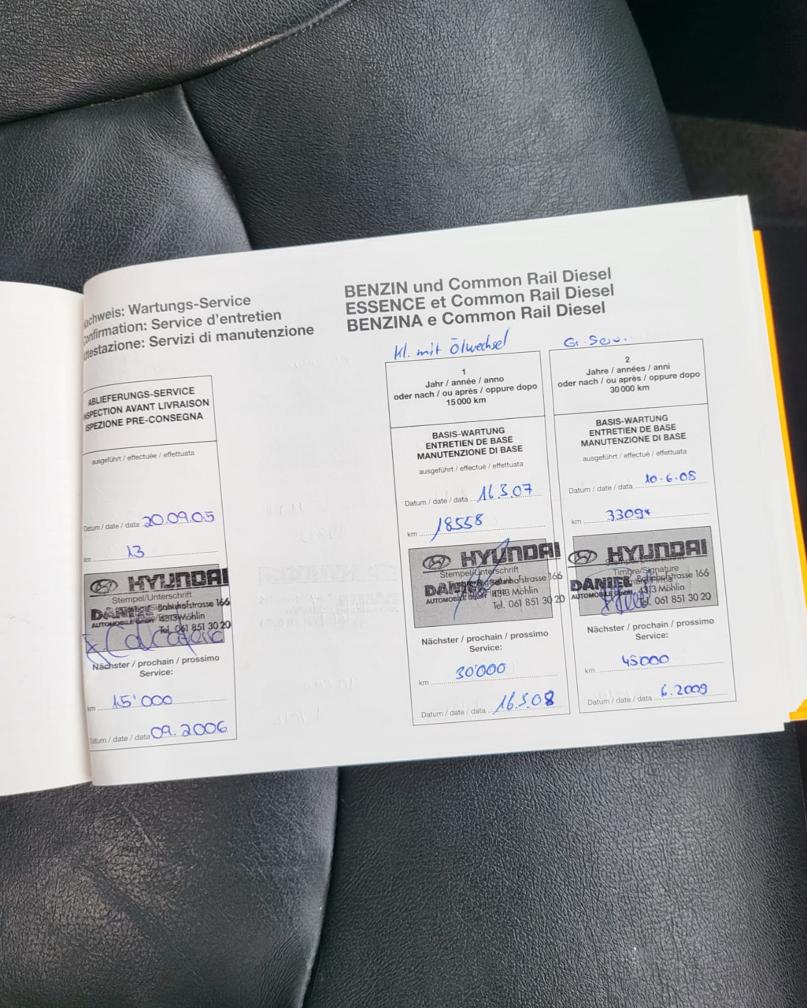 achweis: Wartungs-Service
nfirmation: Service d'entretien
testazione: Servizi di manutenzione
BENZIN und Common Rail Diesel
ESSENCE et Common Rail Diesel
BENZINA e Common Rail Diesel
ABLIEFERUNGS-SERVICE
SPECTION AVANT LIVRAISON
SPEZIONE PRE-CONSEGNA
ausgeführt / effectuée / effettuata
Datum / date / data 20.09.05
km 13
HYUNDAI
Stempel/Unterschrift
DANIEL Bahnhofstrasse 166
AUTOMOBILE GmbH 4313 Möhlin
Tel. 061 851 30 20
Nächster / prochain / prossimo
Service:
km 15'000
Datum / date / data 09.2006
Kl. mit Ölwechsel
1
Jahr / année / anno
oder nach / ou après / oppure dopo
15 000 km
BASIS-WARTUNG
ENTRETIEN DE BASE
MANUTENZIONE DI BASE
ausgeführt / effectué / effettuata
Datum / date / data 16.3.07
km 18558
HYUNDAI
Stempel/Unterschrift
DANIEL Bahnhofstrasse 166
AUTOMOBILE GmbH 4313 Möhlin
Tel. 061 851 30 20
Nächster / prochain / prossimo
Service:
km 30'000
Datum / date / data 16.3.08
Gr. Serv.
2
Jahre / années / anni
oder nach / ou après / oppure dopo
30 000 km
BASIS-WARTUNG
ENTRETIEN DE BASE
MANUTENZIONE DI BASE
ausgeführt / effectué / effettuata
Datum / date / data 10.6.08
km
HYUNDAI
Timbre/Signature
DANIEL Bahnhofstrasse 166
AUTOMOBILE GmbH 4313 Möhlin
Tel. 061 851 30 20
Nächster / prochain / prossimo
Service:
km 45000
Datum / date / data 6.2009